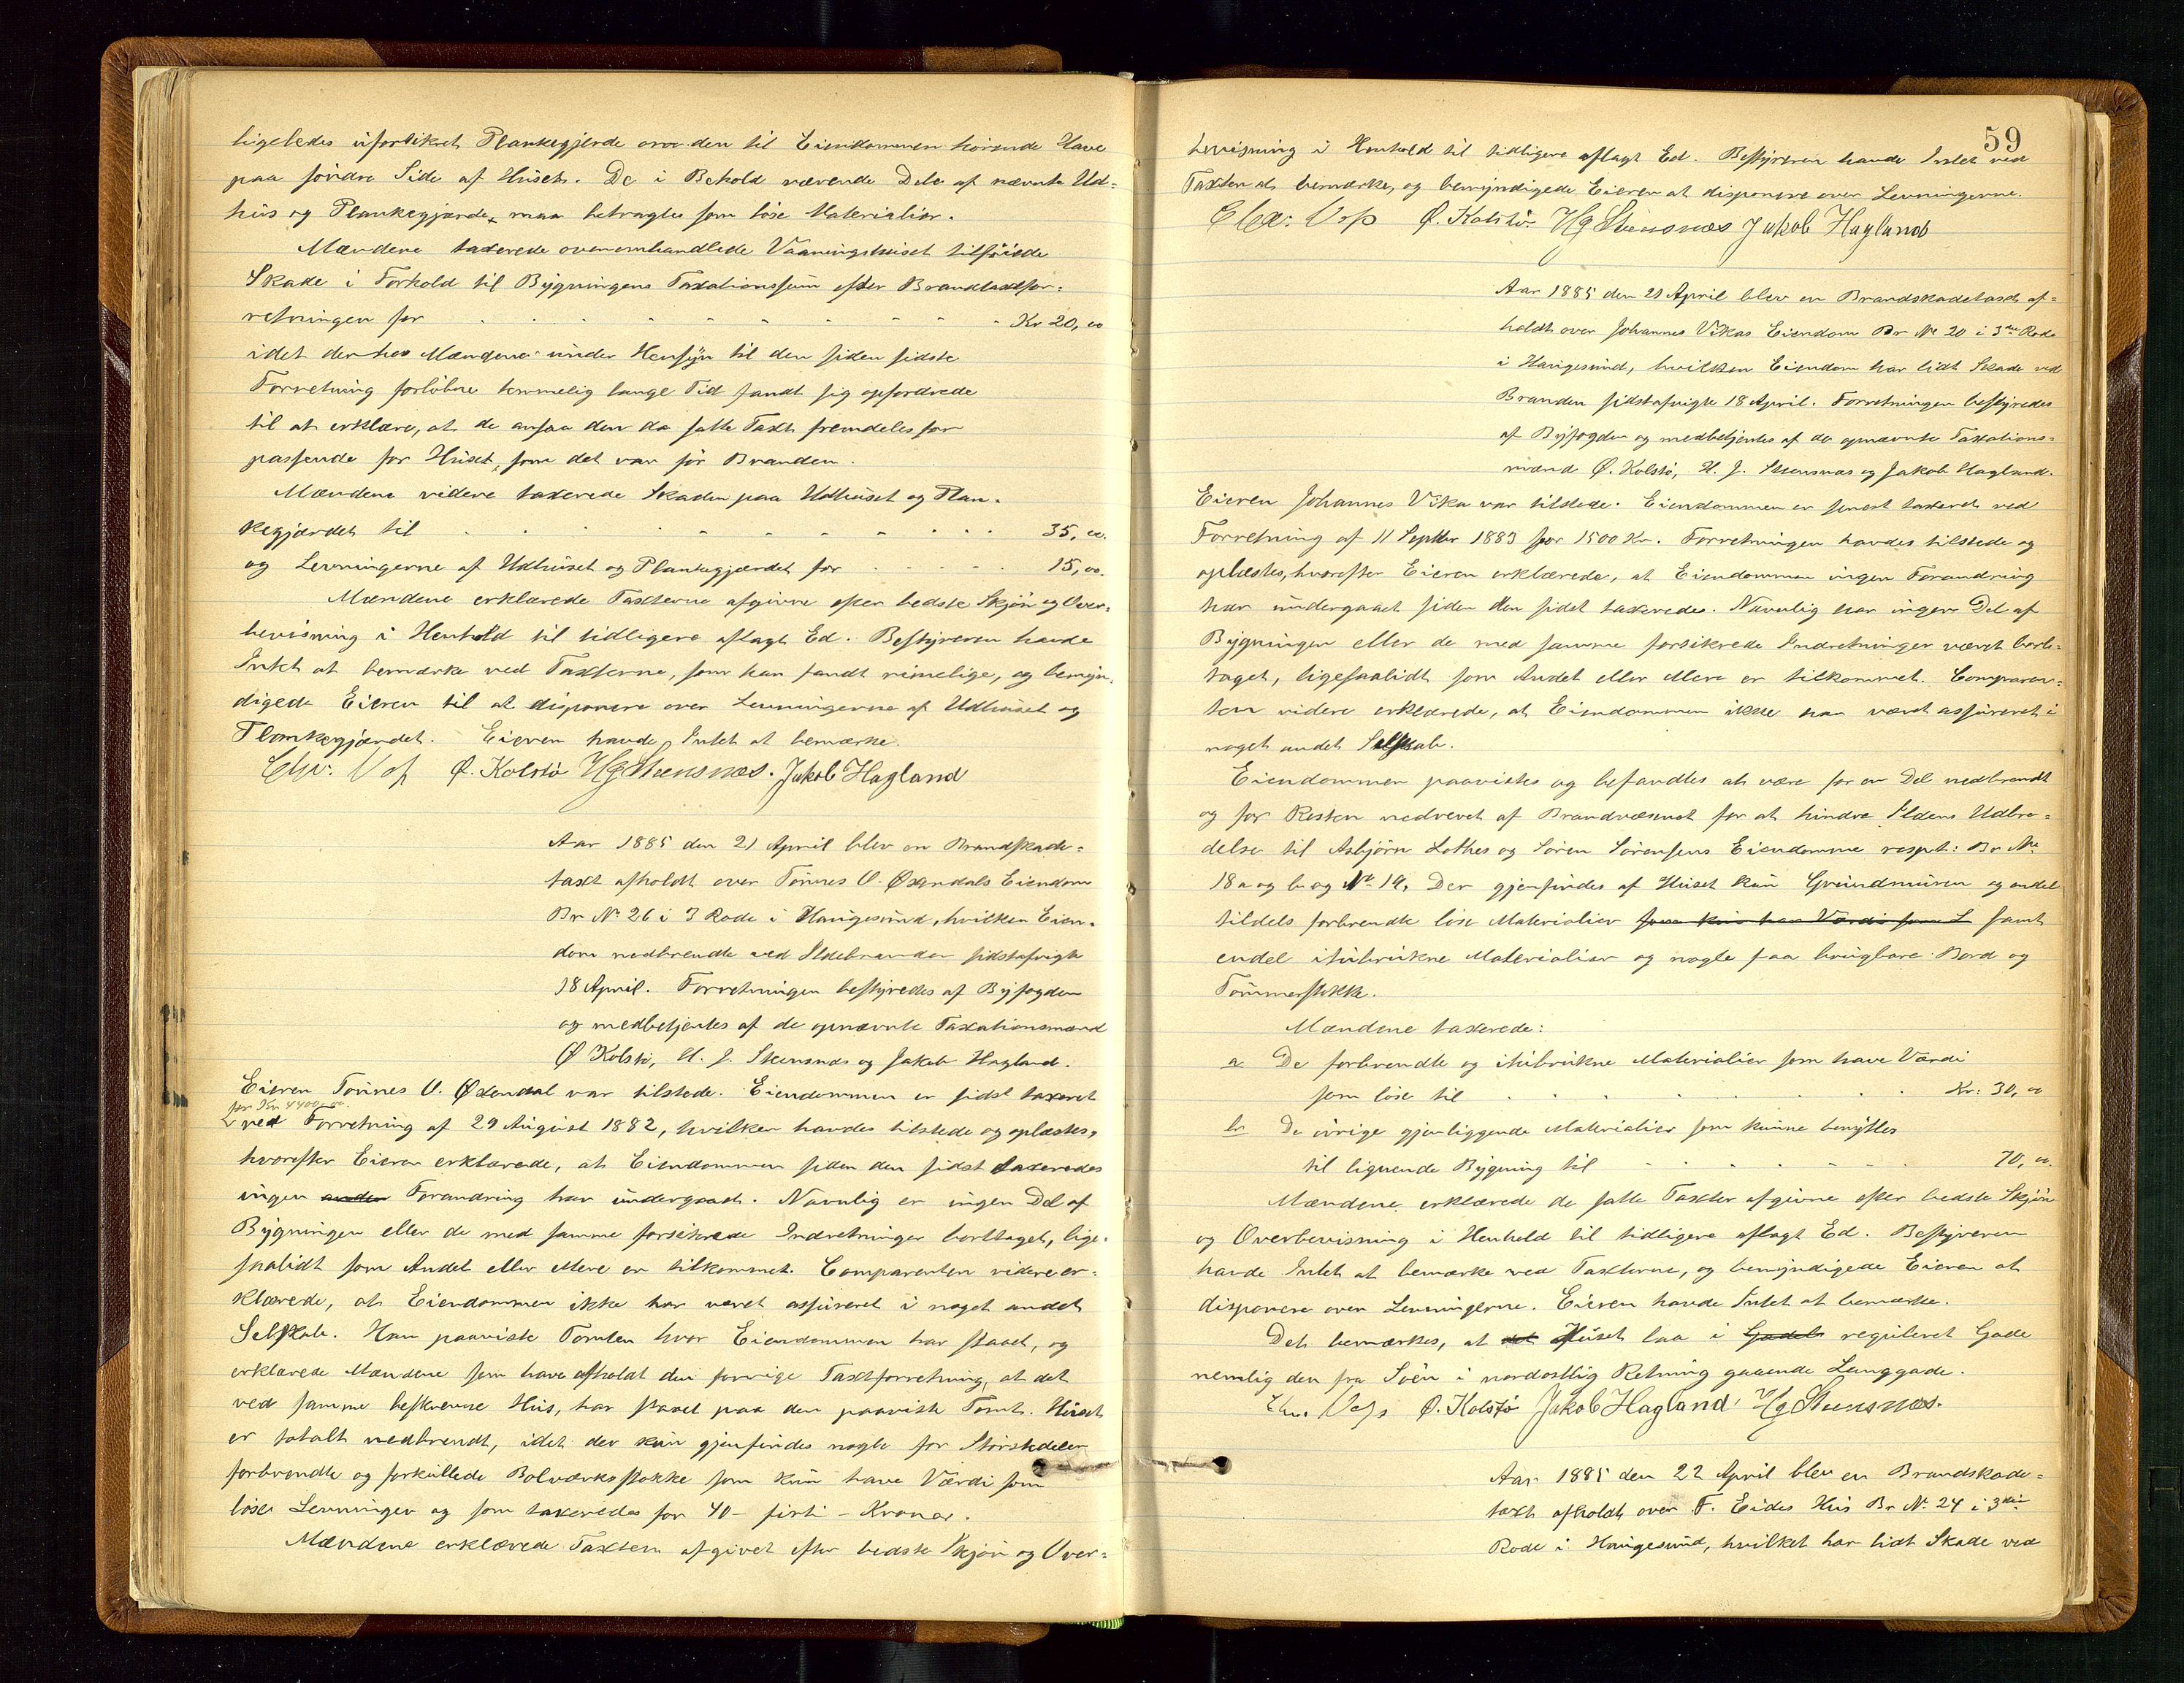 ligeledes uforsikret Plankegjerde over den til Eiendommen hørende Have
paa søndre Side af Huset. De i Behold værende Dele af nævnte Ud-
hus og Plankegjærde, maa betragtes som løse Materialier.
Mændene taxerede ovenomhandlede Vaaningshuset tilføiede
Skade i Forhold til Bygningens Taxationssum efter Brandtaxtfor-
retningen for Kr 20,00
idet derhos Mændene under Hensyn til den siden sidste
Forretning forløbne temmelig lange Tid fandt sig opfordrede
til at erklære, at de ansaa den da satte Taxt fremdeles for
passende for Huset, som det var før Branden.
Mændene videre taxerede Skaden paa Udhuset og Plan-
kegjærdet til 35,00.
og Levningerne af Udhuset og Plankegjærdet for 15,00.
Mændene erklærede Taxterne afgivne efter bedste Skjøn og Over-
bevisning i Henhold til tidligere aflagt Ed. Bestyreren havde
Intet at bemærke ved Taxterne, som han fandt rimelige, og bemyn-
digede Eieren til at disponere over Levningerne af Udhuset og
Plankegjærdet. Eieren havde Intet at bemærke.
Ø. Kolstø HJ Steensnæs. Jakob Hagland
Aar 1885 den 21 April blev en Brandskade-
taxt afholdt over Tønnes O. Øxendals Eiendom
Br No 26 i 3 Rode i Haugesund, hvilken Eien-
dom nedbrendte ved Ildebranden sidstafvigte
18 April. Forretningen bestyredes af Byfogden
og medbetjentes af de opnævnte Taxationsmænd
Ø Kolstø, H. J. Steensnæs og Jakob Hagland.
Eieren Tønnes O. Øxendal var tilstede. Eiendommen er sidst taxeret
for Kr 4400,00
ved Forretning af 29 August 1882, hvilken havdes tilstede og oplæstes,
hvorefter Eieren erklærede, at Eiendommen siden den sidst taxeredes
ingen anden Forandring har undergaaet. Navnlig er ingen Del af
Bygningen eller de med samme forsikrede Indretninger borttaget, lige-
saalidt som Andet eller Mere er tilkommet. Comparenten videre er-
klærede, at Eiendommen ikke har været assureret i noget andet
Selskab. Han paaviste Tomten hvor Eiendommen har staaet, og
erklærede Mændene som have afholdt den forrige Taxtforretning, at det
ved samme beskrevne Hus, har staaet paa den paaviste Tomt. Huset
er totalt nedbrendt, idet der kun gjenfindes nogle for Størstedelen
forbrendte og forkullede Bolværksstokke som kun have Værdi som
løse Levninger og som taxeredes for 40 - firti - Kroner.
Mændene erklærede Taxten afgivet efter bedste Skjøn og Over-
59
bevisning i Henhold til tidligere aflagt Ed. Bestyreren havde Intet ved
Taxten at bemærke, og bemyndigede Eieren at disponere over Levningerne.
Ø. Kolstø. HJ Steensnæs Jakob Hagland
Aar 1885 den 21 April blev en Brandskadetaxt af-
holdt over Johannes Vikas Eiendom Br No 20 i 3die Rode
i Haugesund, hvilken Eiendom har lidt Skade ved
Branden sidstafvigte 18 April. Forretningen bestyredes
af Byfogden og medbetjentes af de opnævnte Taxations-
mænd Ø. Kolstø, H. J. Steensnæs og Jakob Hagland.
Eieren Johannes Vika var tilstede. Eiendommen er senest taxeret ved
Forretning af 11 Septbr 1883 for 1500 Kr. Forretningen havdes tilstede og
oplæstes, hvorefter Eieren erklærede, at Eiendommen ingen Forandring
har undergaaet siden den sidst taxeredes. Navnlig har ingen Del af
Bygningen eller de med samme forsikrede Indretninger været bort-
taget, ligesaalidt som Andet eller Mere er tilkommet. Comparen-
ten videre erklærede, at Eiendommen ikke har været assureret i
noget andet Selskab.
Eiendommen paavistes og befandtes at være for en Del nedbrendt
og for Resten nedrevet af Brandvæsenet for at hindre Ildens Udbre-
delse til Asbjørn Lothes og Søren Sørensens Eiendomme respt: Br No
18 a og b og No 19. Der gjenfindes af Huset kun Grundmuren og endel
tildels forbrendte løse Materialier som kun har Værdi som L samt
endel itubrukne Materialier og nogle faa brugbare Bord og
Tømmerstokke.
Mændene taxerede:
a De forbrendte og itubrukne Materialier som have Værdi
som løse til Kr: 30,00
b De øvrige gjenliggende Materialier som kunne benyttes
til lignende Bygning til 70,00.
Mændene erklærede de satte Taxter afgivne efter bedste Skjøn
og Overbevisning i Henhold til tidligere aflagt Ed. Bestyreren
havde Intet at bemærke ved Taxterne, og bemyndigede Eieren at
disponere over Levningerne. Eieren havde Intet at bemærke.
Det bemærkes, at det Huset laa i Gadel reguleret Gade
nemlig den fra Søen i nordostlig Retning gaaende Langgade.
Ø. Kolstø Jakob Hagland HJ Steensnæs.
Aar 1885 den 22 April blev en Brandskade-
taxt afholdt over F. Eides Hus Br No 24 i 3die
Rode i Haugesund, hvilket har lidt Skade ved